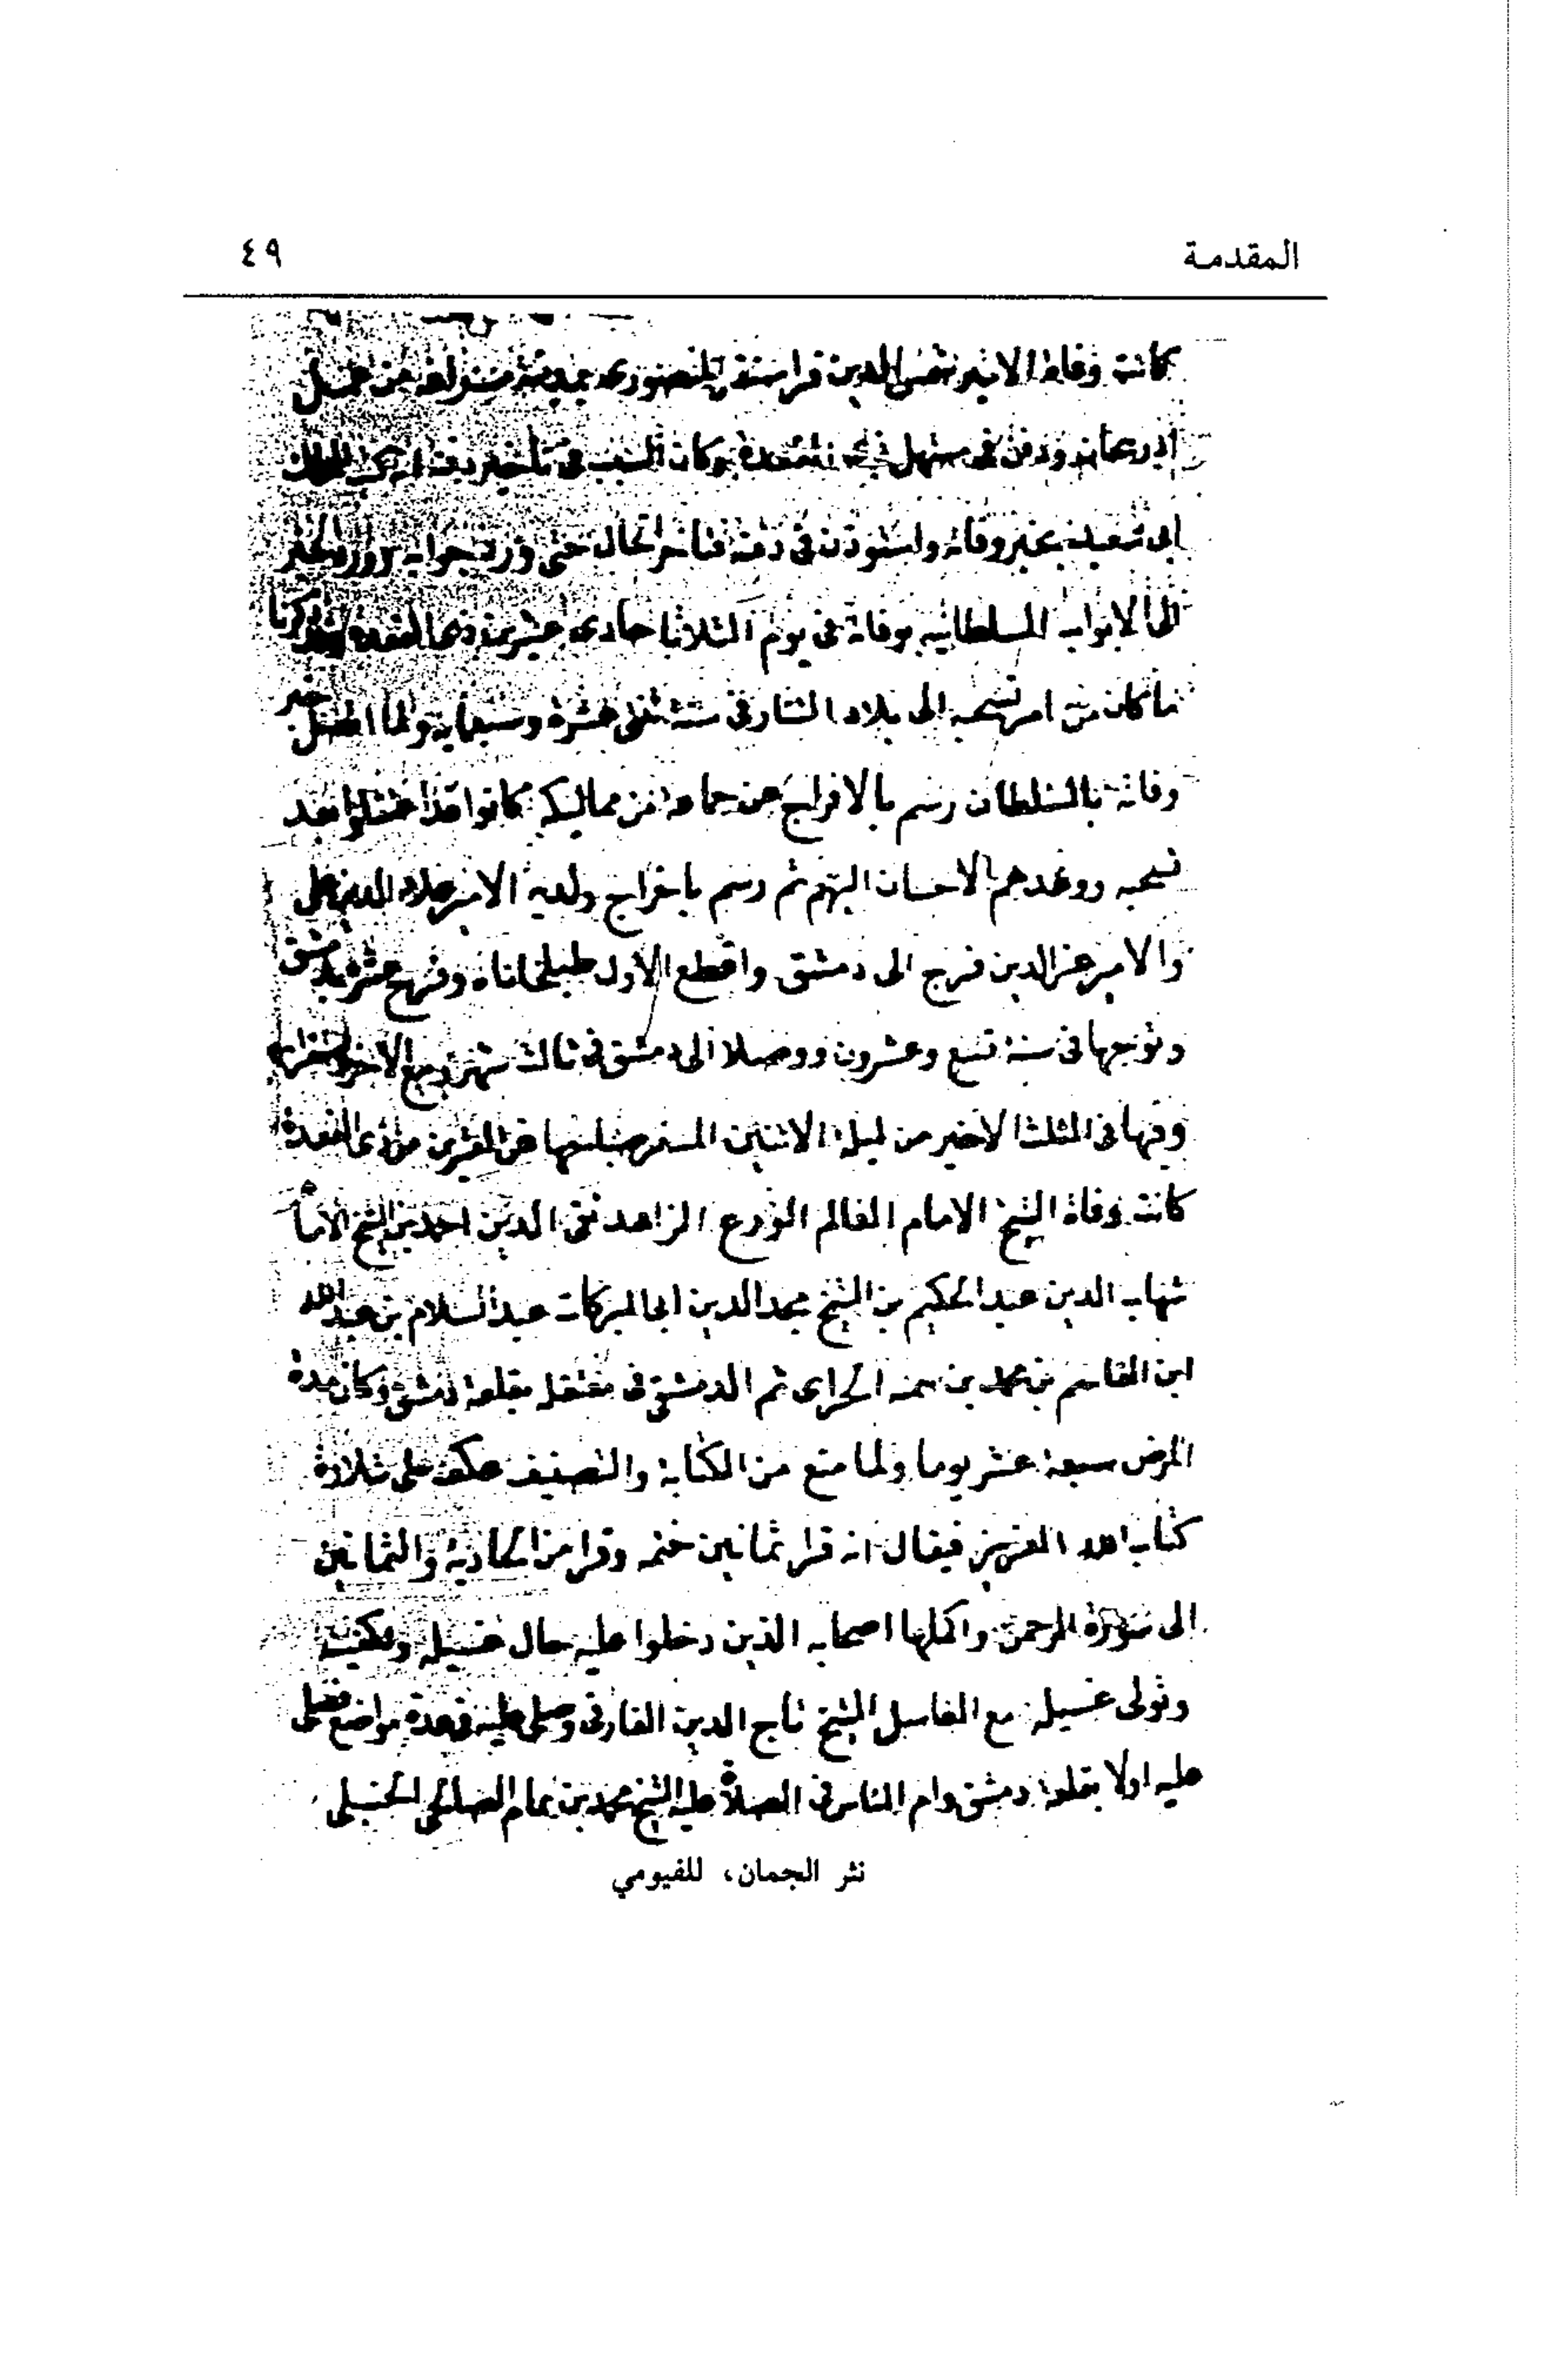 المقدمة
٤٩
كانت وفاة الامير شمس الدين قراسنقر المنصورى بمدينة مراغه من عمل
اذربيجان ودفن فى مستهل ذى القعدة وكان السبب فى تاخير دفنه انه كتب الملك
ابى سعيد بخبر وفاته واستوذن فى دفنه فتاخر الحال حتى ورد جوابه وورد الخبر
الى الابواب السلطانيه بوفاته فى يوم الثلاثا حادى عشرين ذى القعدة وقد ذكرنا
ما كان من امر تسحبه الى بلاد التتار فى سنة اثنتى عشرة وسبعمايه ولما اتصل خبر
وفاته بالسلطان رسم بالافراج عن جماعة من مماليكه كانوا قد اعتقلوا بعد
تسحبه ووعدهم الاحسان اليهم ثم رسم باخراج ولديه الامير علاء الدين على
والامير عز الدين فرج الى دمشق واقطع الاول طبلخاناه وفرج عشرة بدمشق
وتوجها فى سنة تسع وعشرون ووصلا الى دمشق فى ثالث شهر ربيع الاخر
وفيها فى الثلث الاخير من ليلة الاثنين المسفر صباحها عن العشرين من ذى القعدة
كانت وفاة الشيخ الامام العالم الورع الزاهد تقى الدين احمد بن الشيخ الامام
شهاب الدين عبد الحكيم بن الشيخ مجد الدين ابى البركات عبد السلام بن عبد الله
ابن القاسم بن محمد بن تيميه الحرانى ثم الدمشقى فى معتقله بقلعة دمشق وكان مدة
المرض سبعة عشر يوما ولما منع من الكتابة والتصنيف عكف على تلاوة
كتاب الله العزيز فيقال انه قرا ثمانين ختمه وقرا من الحادية والثمانين
الى سورة الرحمن واكملها اصحابه الذين دخلوا عليه حال غسله وتكفينه
وتولى غسله مع الغاسل الشيخ تاج الدين الفارقى وصلى عليه فى عدة مواضع فصلى
عليه اولا بقلعة دمشق وام الناس فى الصلاة عليه الشيخ محمد بن تمام الصالحى الحنبلى
نثر الجمان، للفيومي